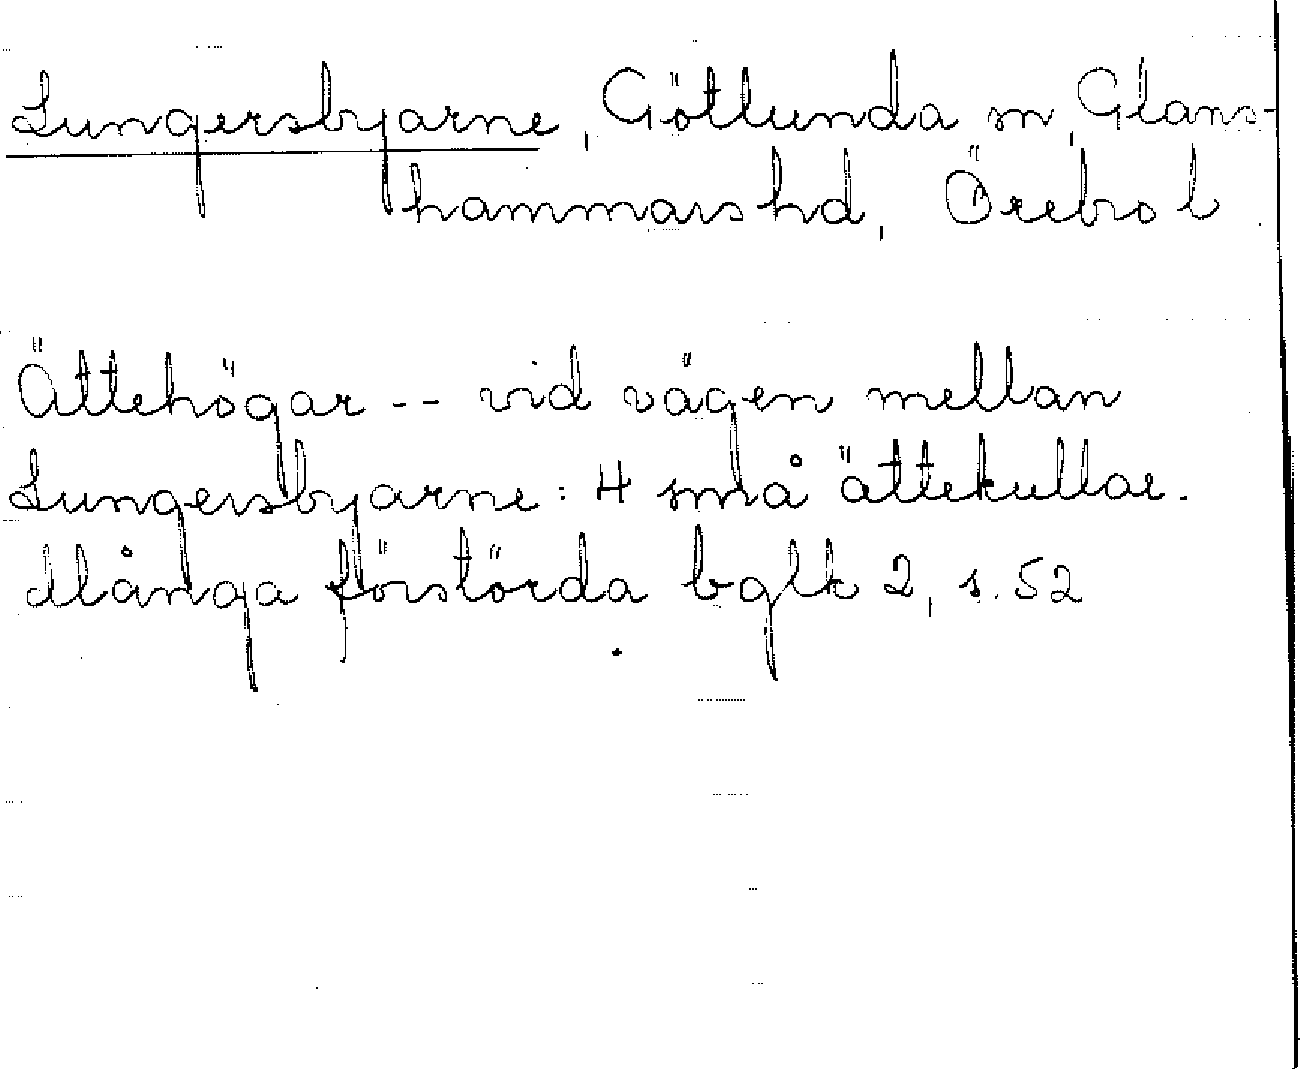 Lungersbyarne, Götlunda sn, Glans-
hammars hd, Örebro l
Ättehögar -- vid vägen mellan
Lungersbyarne: 4 små ättekullar.
Många förstörda bglk 2, s. 52